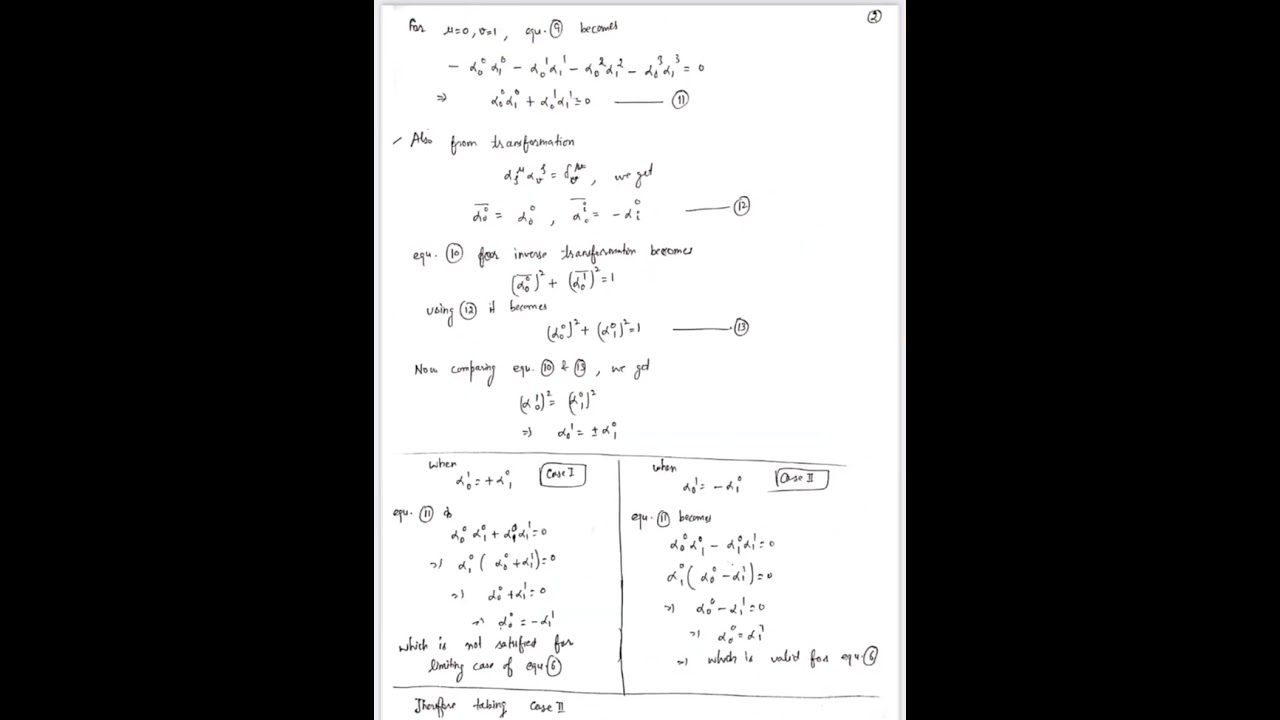 ②
For μ=0, ν=1, equ. ⑨ becomes
− α₀⁰ α₁⁰ − α₀¹ α₁¹ − α₀² α₁² − α₀³ α₁³ = 0
⇒ α₀⁰ α₁⁰ + α₀¹ α₁¹ = 0 —— ⑪
Also from transformation
α_ξ^μ α_ν^ξ = δ_ν^μ, we get
\overline{α₀⁰} = α₀⁰, \overline{α₀ⁱ} = − αᵢ⁰ —— ⑫
equ. ⑩ for inverse transformation becomes
(\overline{α₀⁰})² + (\overline{α₀¹})² = 1
using ⑫ it becomes
(α₀⁰)² + (α₁⁰)² = 1 —— ⑬
Now comparing equ. ⑩ & ⑬, we get
(α₀¹)² = (α₁⁰)²
⇒ α₀¹ = ± α₁⁰
when
α₀¹ = + α₁⁰ Case I
equ. ⑪ is
α₀⁰ α₁⁰ + α₁⁰ α₁¹ = 0
⇒ α₁⁰ ( α₀⁰ + α₁¹ ) = 0
⇒ α₀⁰ + α₁¹ = 0
⇒ α₀⁰ = − α₁¹
which is not satisfied for
limiting case of equ ⑥
when
α₀¹ = − α₁⁰ Case II
equ. ⑪ becomes
α₀⁰ α₁⁰ − α₁⁰ α₁¹ = 0
α₁⁰ ( α₀⁰ − α₁¹ ) = 0
⇒ α₀⁰ − α₁¹ = 0
⇒ α₀⁰ = α₁¹
⇒ which is valid for equ. ⑥
Therefore taking Case II